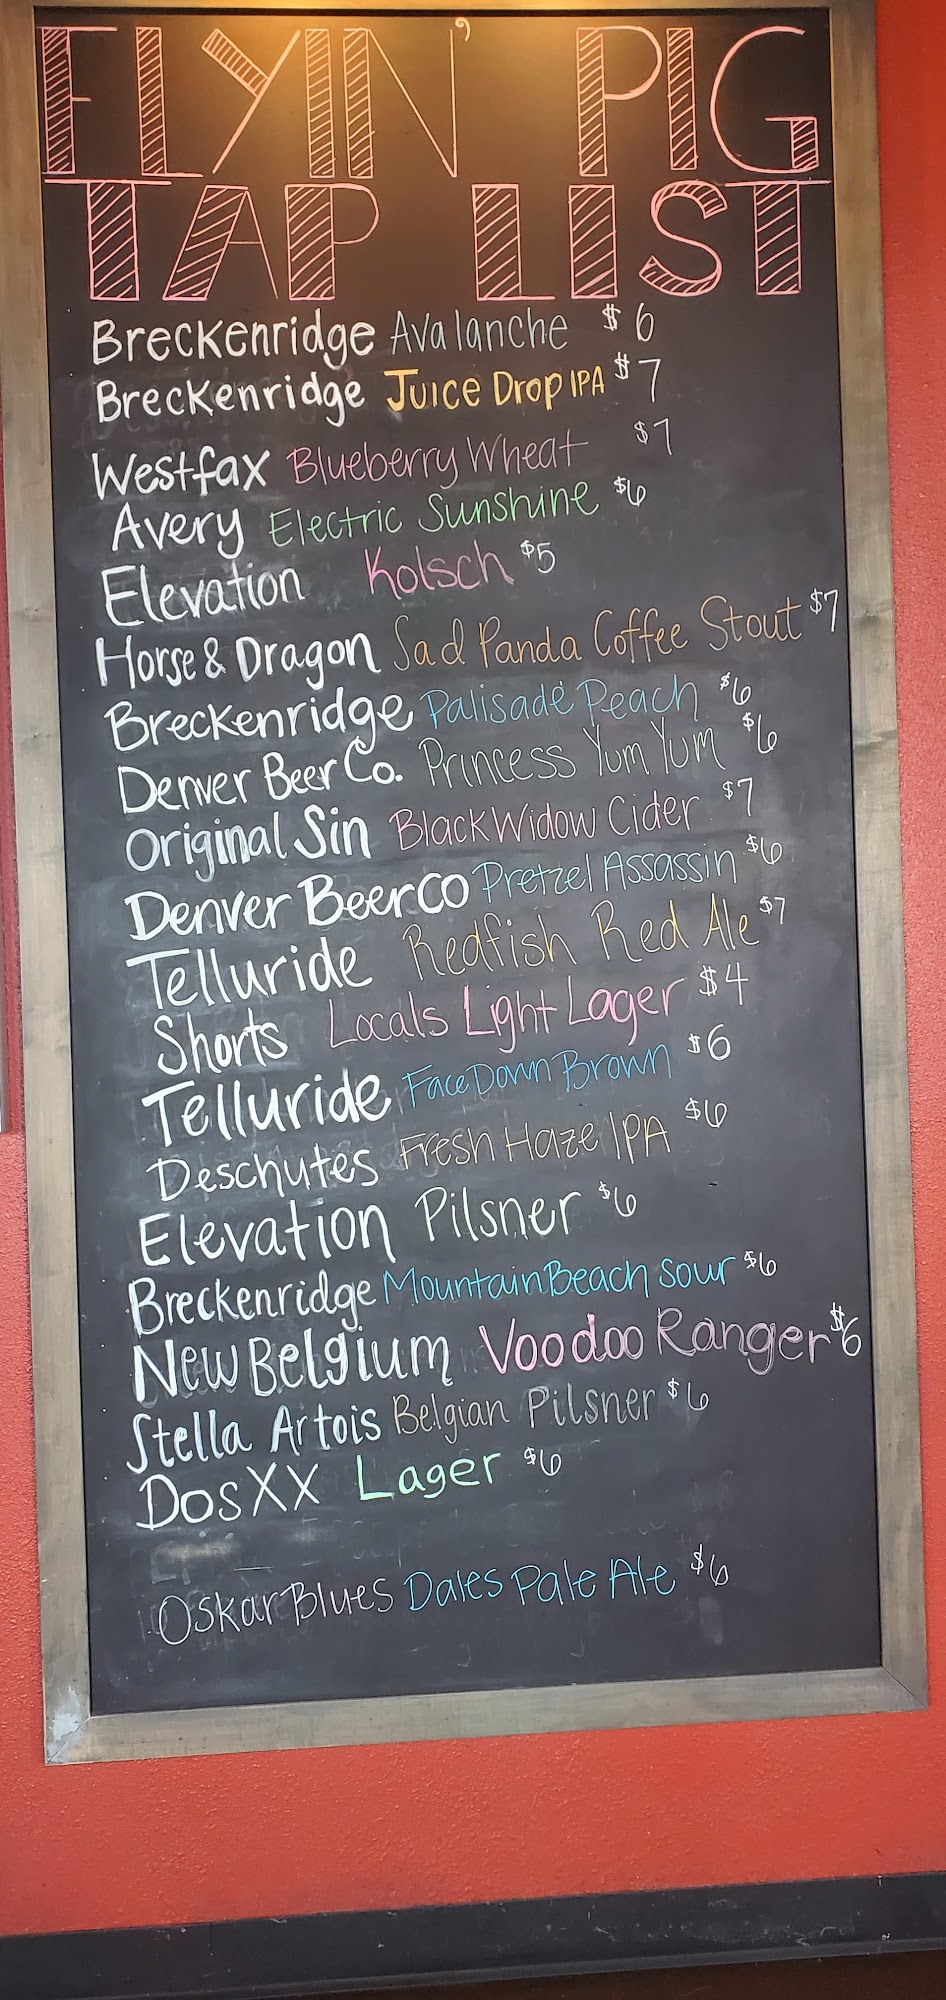 FLYIN' PIG
TAP LIST
Breckenridge Avalanche $6
Breckenridge Juice Drop IPA $7
Westfax Blueberry Wheat $7
Avery Electric Sunshine $6
Elevation Kolsch $5
Horse & Dragon Sad Panda Coffee Stout $7
Breckenridge Palisade Peach $6
Denver Beer Co. Princess Yum Yum $6
Original Sin Black Widow Cider $7
Denver Beer Co Pretzel Assassin $6
Telluride Redfish Red Ale $7
Shorts Locals Light Lager $4
Telluride Face Down Brown $6
Deschutes Fresh Haze IPA $6
Elevation Pilsner $6
Breckenridge Mountain Beach Sour $6
New Belgium Voodoo Ranger $6
Stella Artois Belgian Pilsner $6
Dos XX Lager $6
Oskar Blues Dales Pale Ale $6